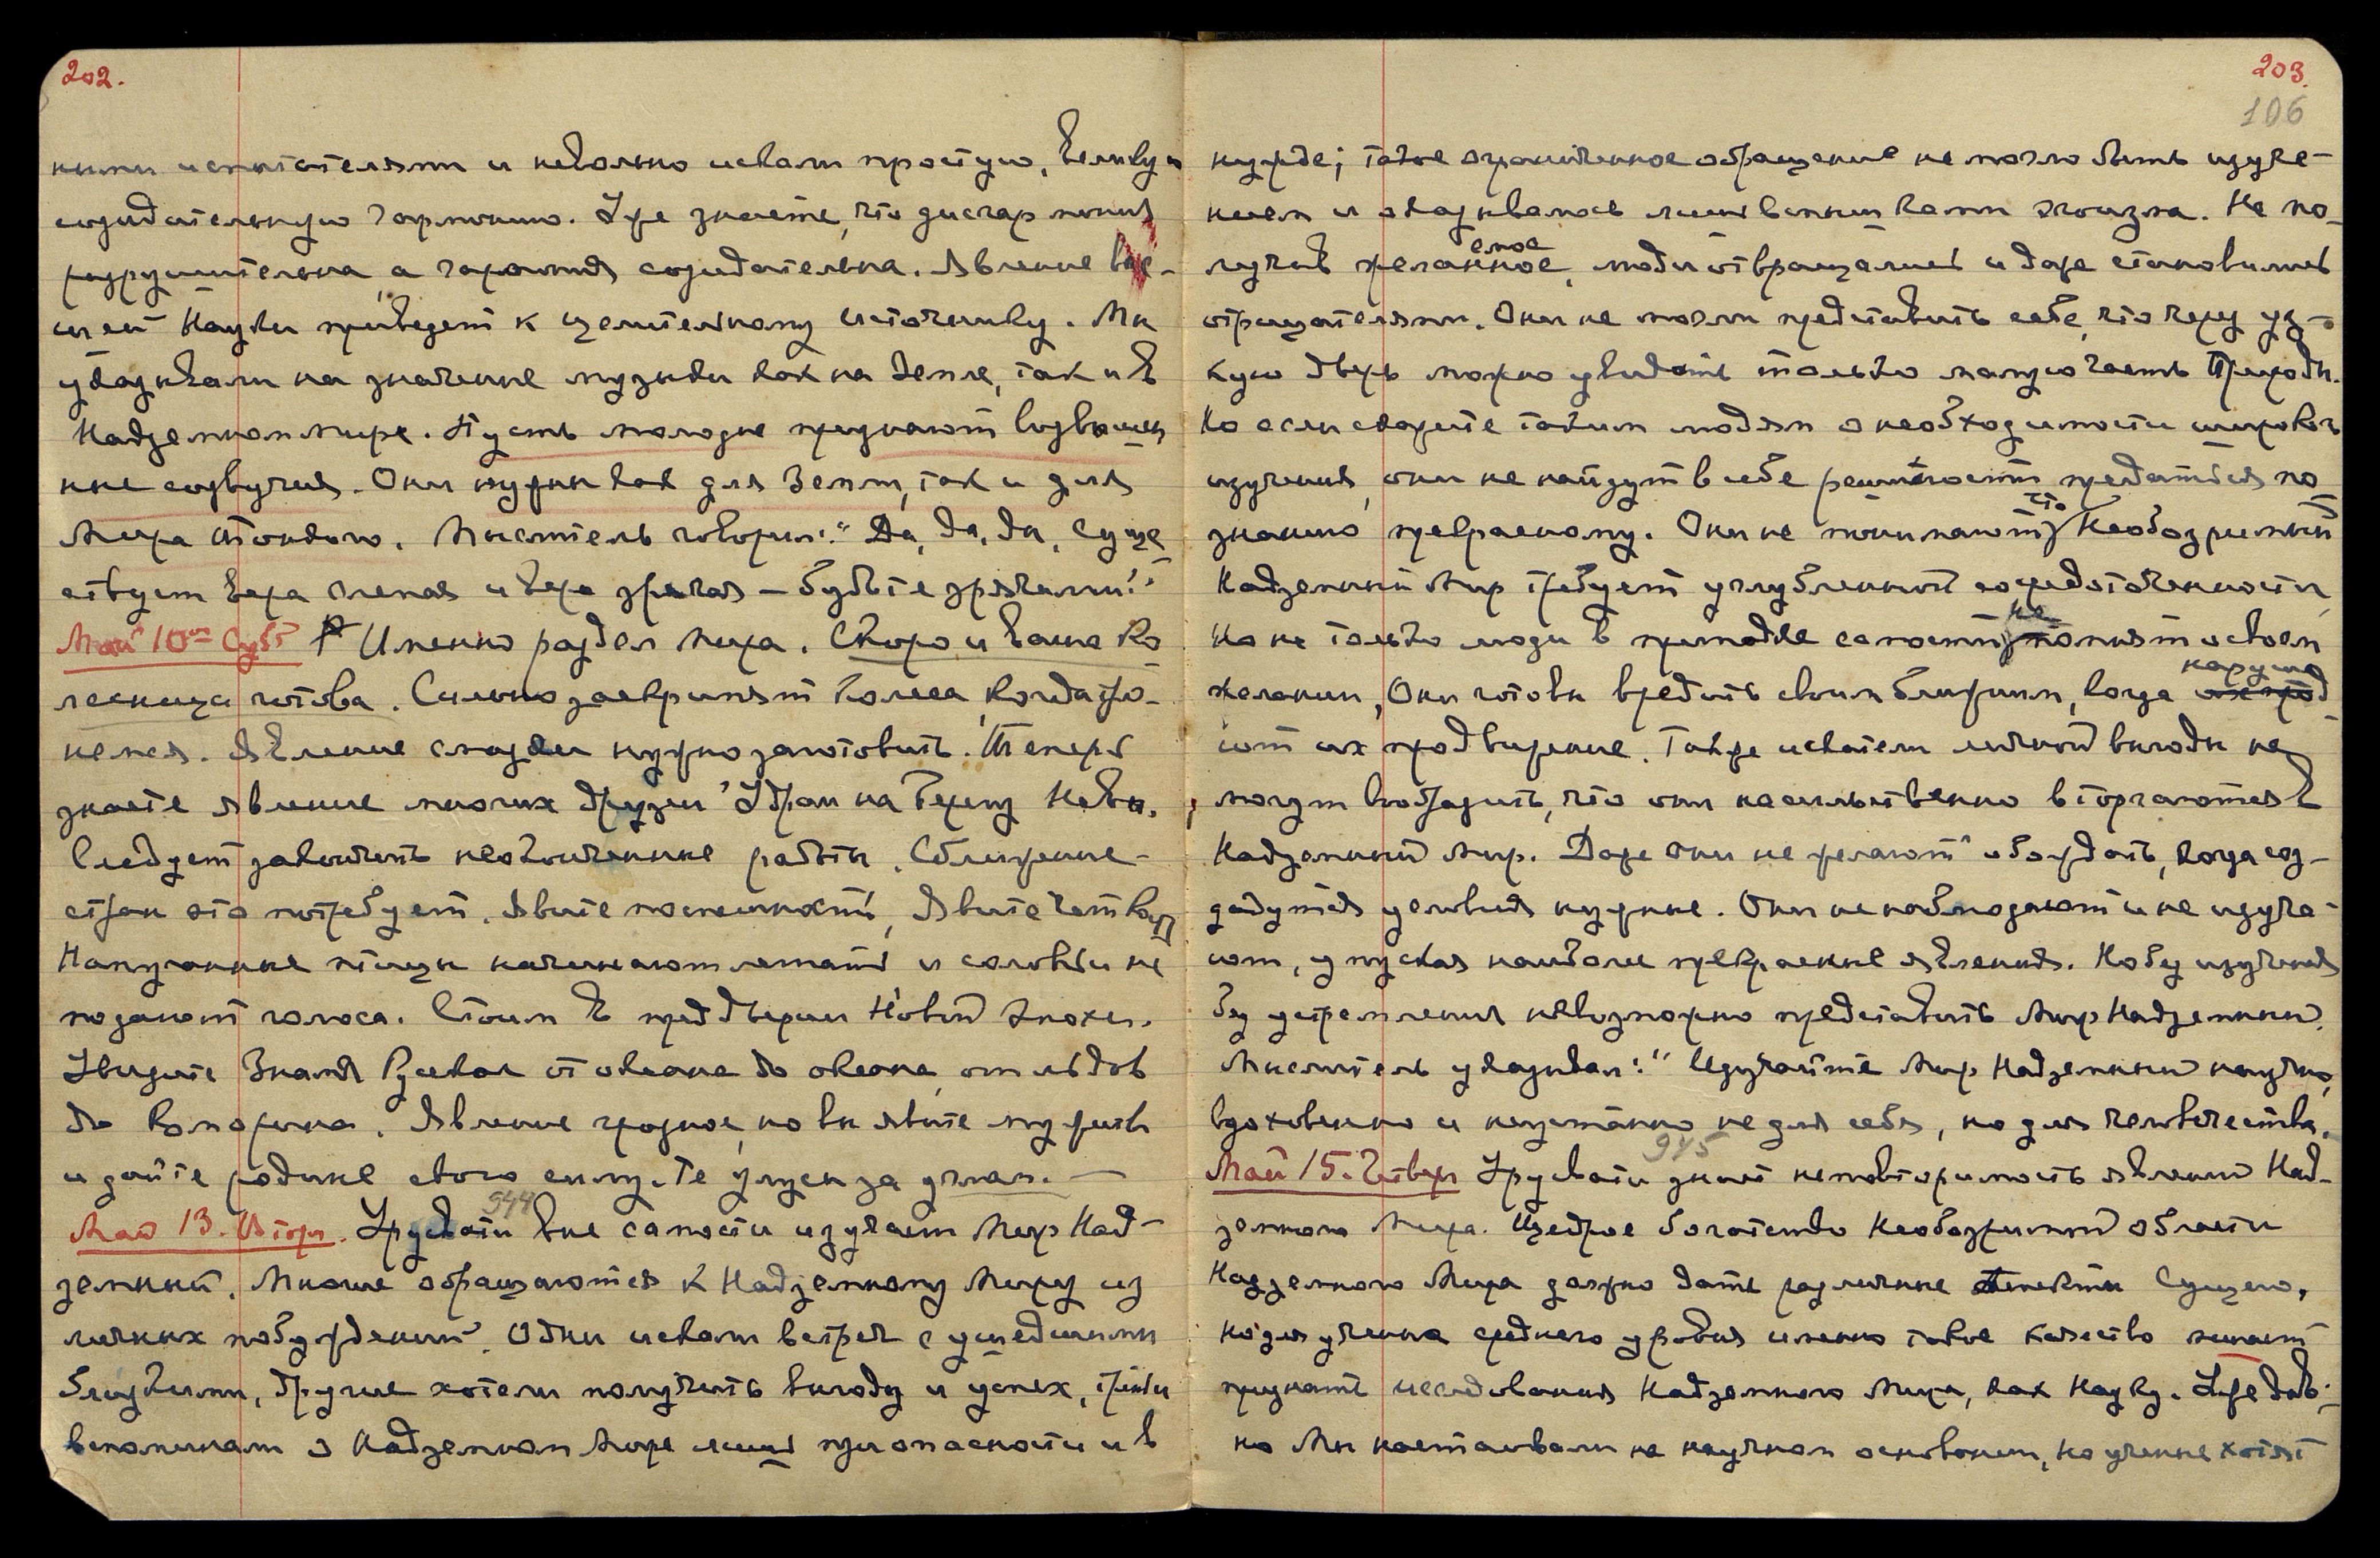 202.
ными испытателями и невольно искали простую, великую
созидательную гармонию. Уже знаете, что дисгармония
разрушительна, а гармония созидательна. Явление
шей Науки приведет к целительному источнику. Мы
указывали на значение музыки как на Земле, так и в
Надземном мире. Пусть молодые признают возвышен
ные созвучия. Они нужны как для Земли, так и для
Мира Тонкого. Мыслитель говорил: "Да, да, да, суще
ствует вера слепая и вера зрячая — будьте зрячими!"
Май 10ое Субб Именно раздел Мира. Скоро и ваша ко
лесница готова. Сильно заскрипят колеса, когда тро-
немся. Явление смазки нужно заготовить. Теперь
знаете явление многих друзей Уграи на берегу Невы.
Следует закончить неоконченные работы. Сближение
стран это потребует. Явите поспешность, явите четкость
Напуганные птицы начинают летать и соловьи не
подают голоса. Стоим в преддверии Новой Эпохи.
Увидите Знамя Русское от океана до океана, от льдов
до Коморина. Явление грозное, но вы явите мужество
и дайте родине свою силу.
944
Май 13. Вторн. Урусвати вне самости изучает Мир Над-
земный. Многие обращаются к Надземному Миру из
личных побуждений. Одни искали встреч с ушедшими
близкими, другие хотели получить выгоду и успех, третьи
вспоминали о Надземном Мире лишь при опасности и в
203.
106
нужде; такое ограниченное обращение не могло быть изуче-
нием и оказывалось лишь вспышками эгоизма. Не по-
емое
лучив желанное, люди отвращались и даже становились
отрицателями. Они не могли представить себе, что через уз-
кую дверь можно увидать только малую часть Природы.
Но если скажете таким людям о необходимости широкого
изучения, они не найдут в себе решимости предаться по
что
знанию прекрасному. Они не понимают, Необозримый
Надземный Мир требует углубленной сосредоточенности,
не
Но не только люди в припадке самости помнят о своем
наруша
желании, они готовы вредить своим ближним, когда их прод
ют их продвижение. Также искатели личной выгоды не
могут вообразить, что они насильственно вторгаются в
Надземный Мир. Даже они не желают обождать, когда соз-
дадутся условия нужные. Они не наблюдают и не изуча-
ют, упуская наиболее прекрасные явления. Но без изучения
без устремления невозможно представить Мир Надземный.
Мыслитель указывал: "Изучайте Мир Надземный научно,
вдохновенно и неустанно не для себя, но для человечества.
945
Май 15. Четверг Урусвати знает неповторимость явлений Над-
земного Мира. Щедрое богатство Необозримой области
Надземного Мира должно дать различные аспекты Сущего,
но для ученых среднего уровня именно такое качество мешает
признать исследования Надземного Мира, как Науку. Уже дав-
но Мы настаивали на научном основании, но ученые хотят